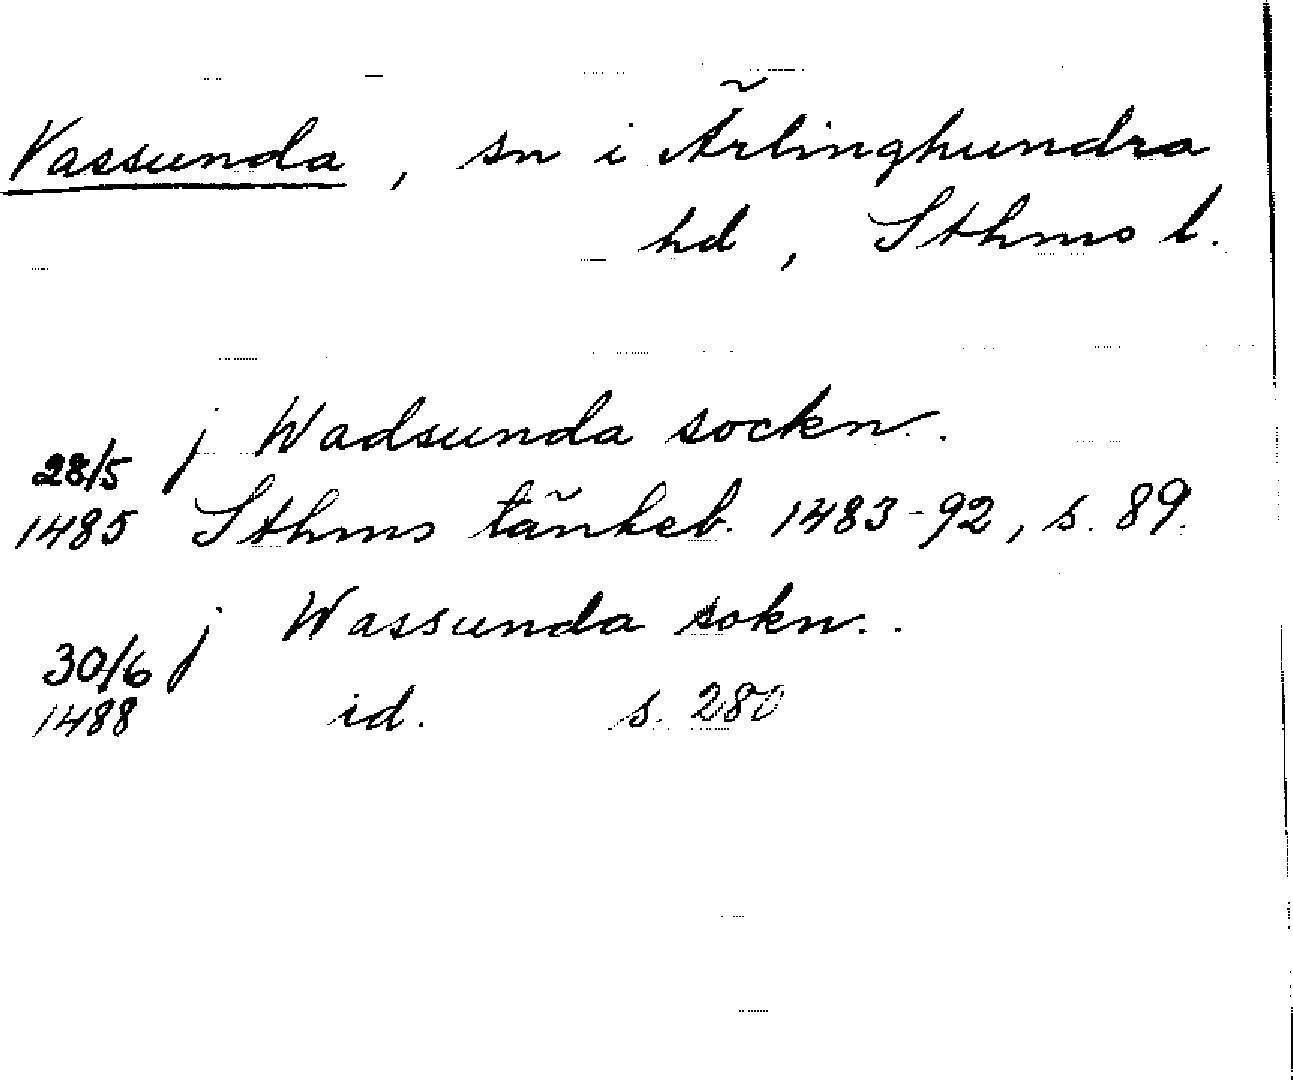 Vassunda, sn i Ärlinghundra
hd, Sthms l.
j Wadsunda sockn.
28/5
1485 Sthms tänkeb. 1483-92, s. 89.
j Wassunda sokn..
30/6
1488 id. s. 280